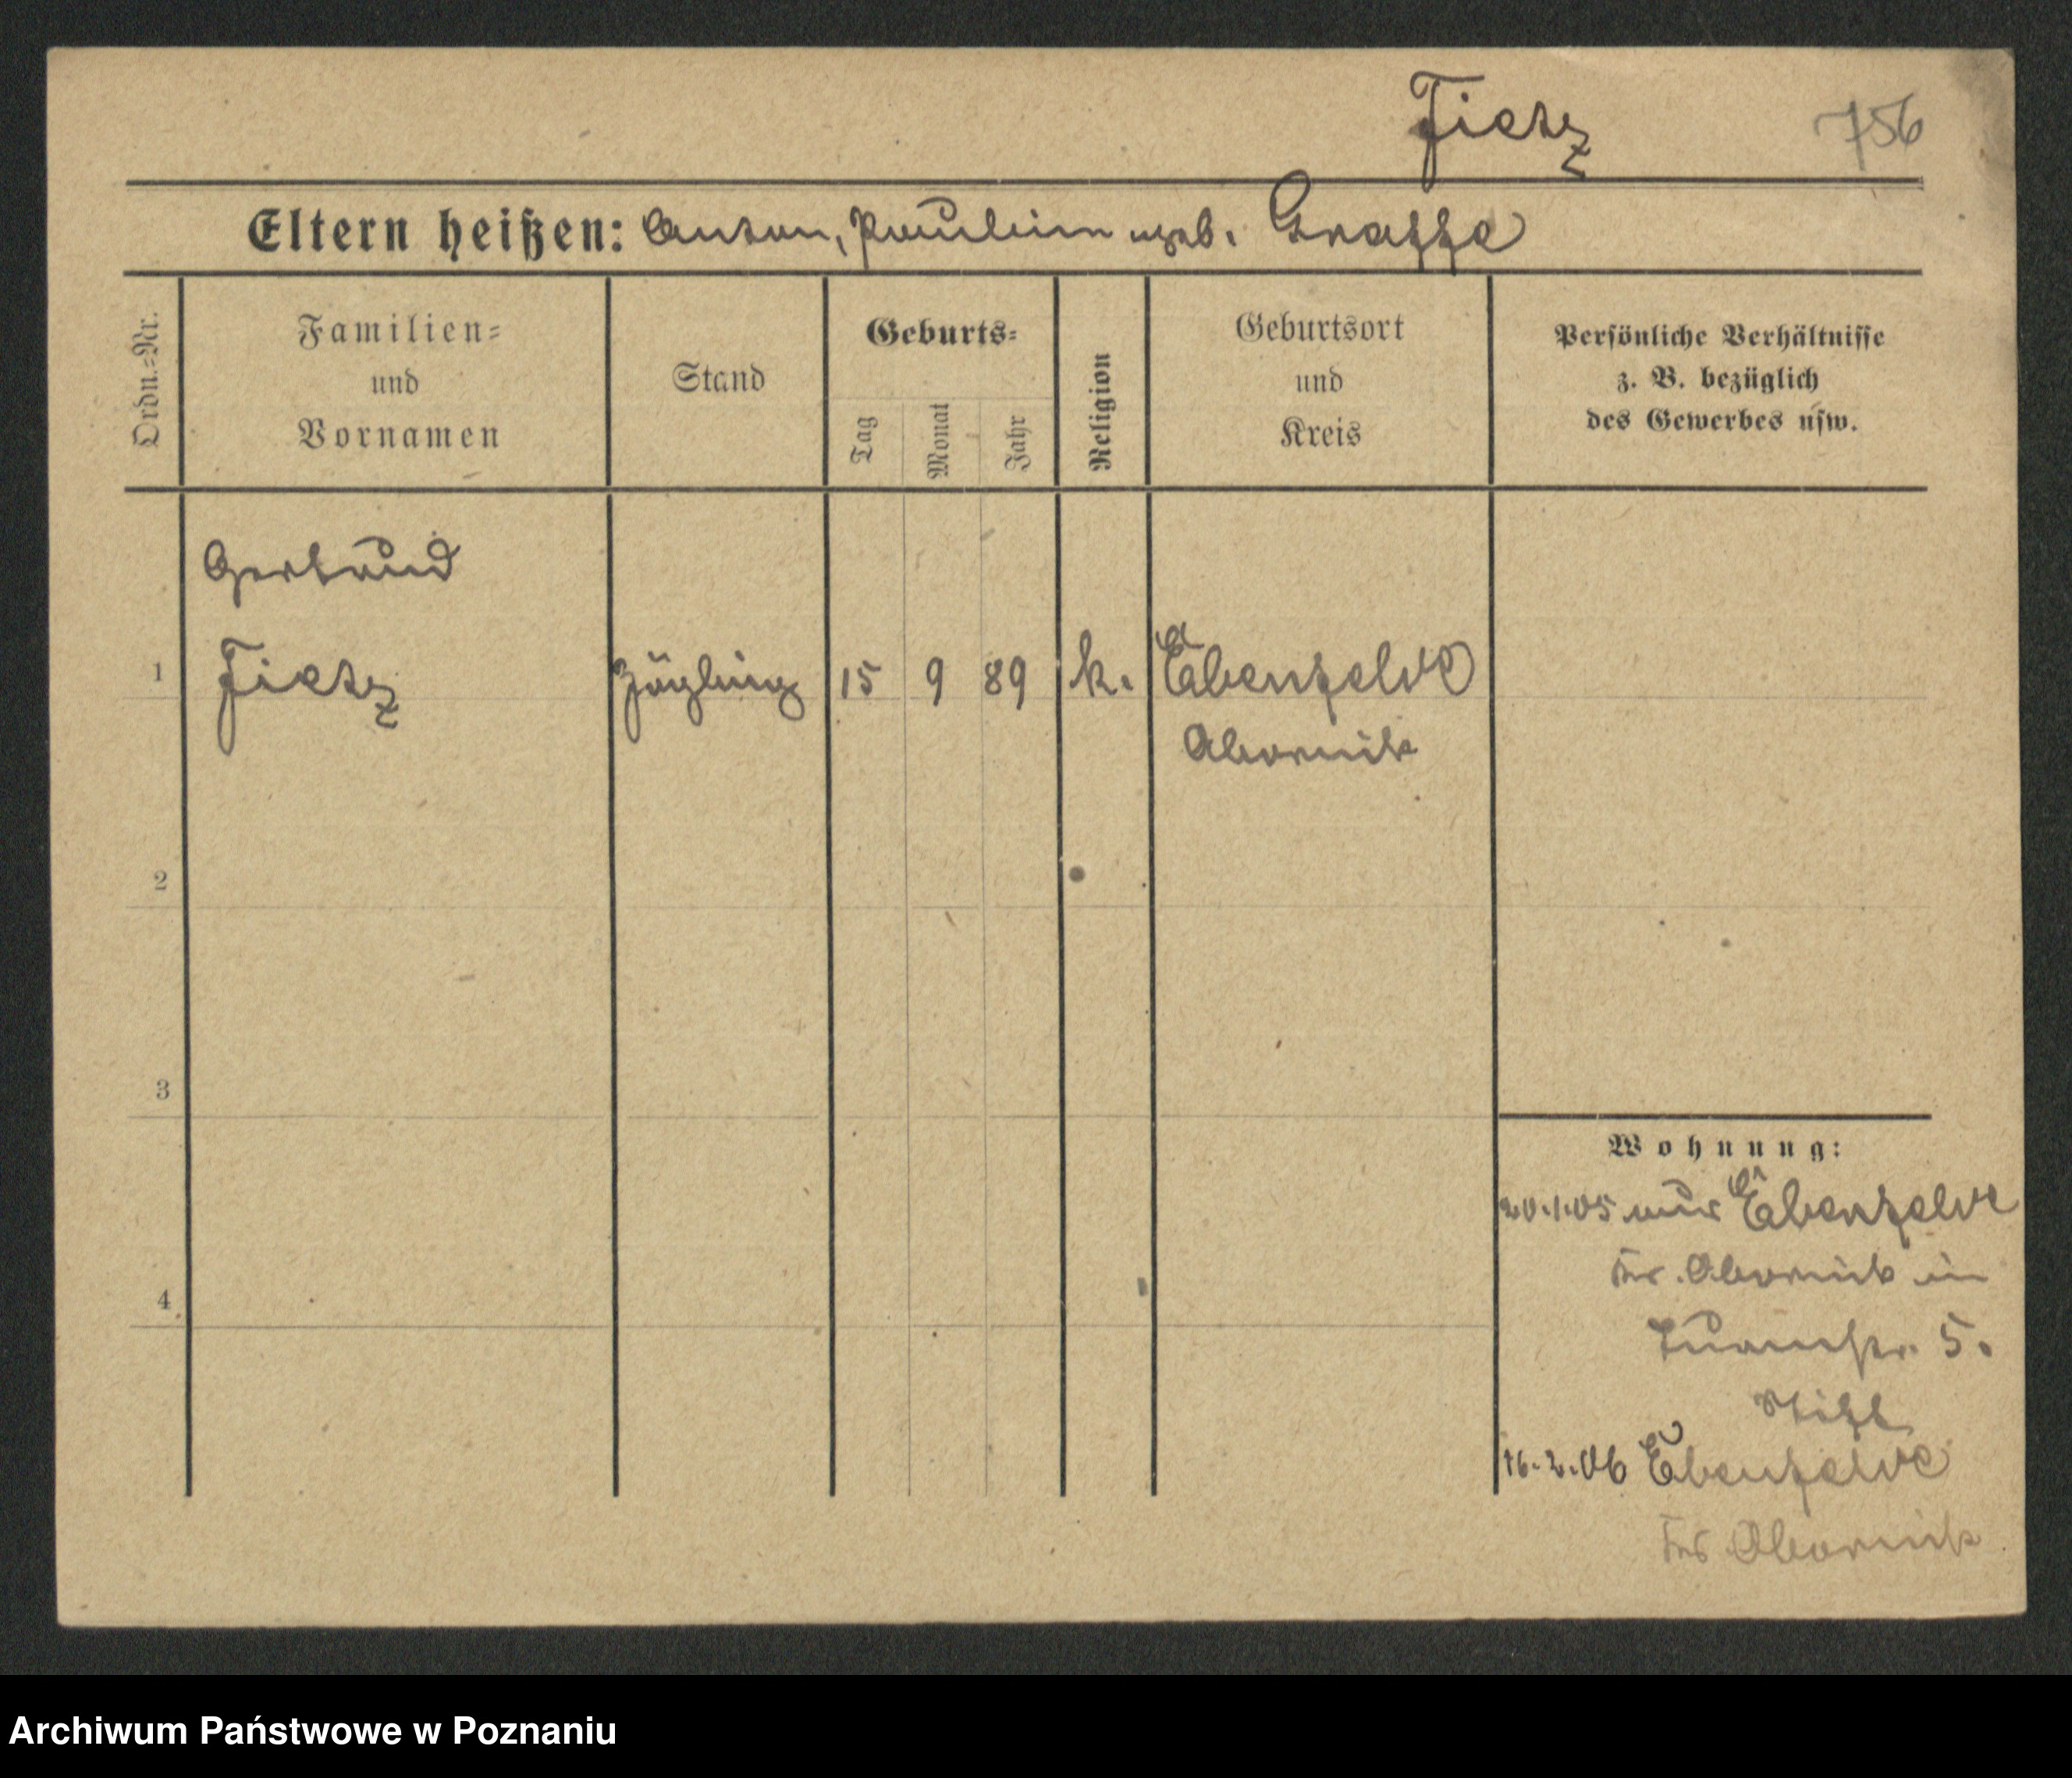 Fietz 756
Eltern heißen: Anton, Paulin geb. Graffe
Ordn.=Nr.
Familien=
und
Vornamen
Stand
Geburts=
Tag
Monat
Jahr
Religion
Geburtsort
und
Kreis
Persönliche Verhältnisse
z. B. bezüglich
des Gewerbes usw.
Gertrud
1 Fietz Zögling 15 9 89 k. Ebenfelde
Obornik
2
3
4
Wohnung:
20.1.05 aus Ebenfelde
Kr. Obornik in
5.
16.2.06 Ebenfelde
Krs Obornik
Archiwum Państwowe w Poznaniu